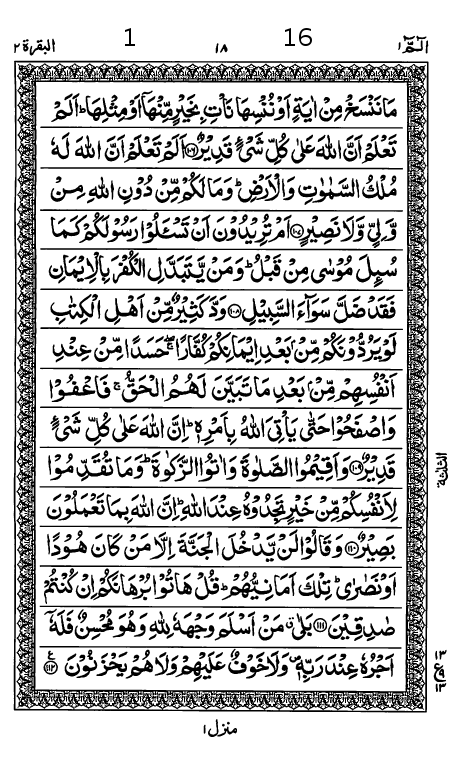 1 16
الٓمّٓ ١ ١٨ البقرة ٢
مَا نَنْسَخْ مِنْ اٰيَةٍ اَوْ نُنْسِهَا نَاْتِ بِخَيْرٍ مِّنْهَاۤ اَوْ مِثْلِهَا ؕ اَلَمْ
تَعْلَمْ اَنَّ اللّٰهَ عَلٰى كُلِّ شَیْءٍ قَدِيْرٌ ﴿۱۰۶﴾ اَلَمْ تَعْلَمْ اَنَّ اللّٰهَ لَهٗ
مُلْكُ السَّمٰوٰتِ وَالْاَرْضِ ؕ وَمَا لَكُمْ مِّنْ دُوْنِ اللّٰهِ مِنْ
وَّلِيٍّ وَّلَا نَصِيْرٍ ﴿۱۰۷﴾ اَمْ تُرِيْدُوْنَ اَنْ تَسْـَٔلُوْا رَسُوْلَكُمْ كَمَا
سُىِٕلَ مُوْسٰى مِنْ قَبْلُ ؕ وَمَنْ يَّتَبَدَّلِ الْكُفْرَ بِالْاِيْمَانِ
فَقَدْ ضَلَّ سَوَآءَ السَّبِيْلِ ﴿۱۰۸﴾ وَدَّ كَثِيْرٌ مِّنْ اَهْلِ الْكِتٰبِ
لَوْ يَرُدُّوْنَكُمْ مِّنْۢ بَعْدِ اِيْمَانِكُمْ كُفَّارًا ۖۚ حَسَدًا مِّنْ عِنْدِ
اَنْفُسِهِمْ مِّنْۢ بَعْدِ مَا تَبَيَّنَ لَهُمُ الْحَقُّ ۚ فَاعْفُوْا
وَاصْفَحُوْا حَتّٰى يَاْتِیَ اللّٰهُ بِاَمْرِهٖ ؕ اِنَّ اللّٰهَ عَلٰى كُلِّ شَیْءٍ
قَدِيْرٌ ﴿۱۰۹﴾ وَاَقِيْمُوا الصَّلٰوةَ وَاٰتُوا الزَّكٰوةَ ؕ وَمَا تُقَدِّمُوْا
لِاَنْفُسِكُمْ مِّنْ خَيْرٍ تَجِدُوْهُ عِنْدَ اللّٰهِ ؕ اِنَّ اللّٰهَ بِمَا تَعْمَلُوْنَ
بَصِيْرٌ ﴿۱۱۰﴾ وَقَالُوْا لَنْ يَّدْخُلَ الْجَنَّةَ اِلَّا مَنْ كَانَ هُوْدًا
اَوْ نَصٰرٰى ؕ تِلْكَ اَمَانِيُّهُمْ ؕ قُلْ هَاتُوْا بُرْهَانَكُمْ اِنْ كُنْتُمْ
صٰدِقِيْنَ ﴿۱۱۱﴾ بَلٰى ۗ مَنْ اَسْلَمَ وَجْهَهٗ لِلّٰهِ وَهُوَ مُحْسِنٌ فَلَهٗۤ
اَجْرُهٗ عِنْدَ رَبِّهٖ ۪ وَلَا خَوْفٌ عَلَيْهِمْ وَلَا هُمْ يَحْزَنُوْنَ ﴿۱۱۲﴾ ع
الثلثة
۱۳
ع ۹
۱۳
منزل ١